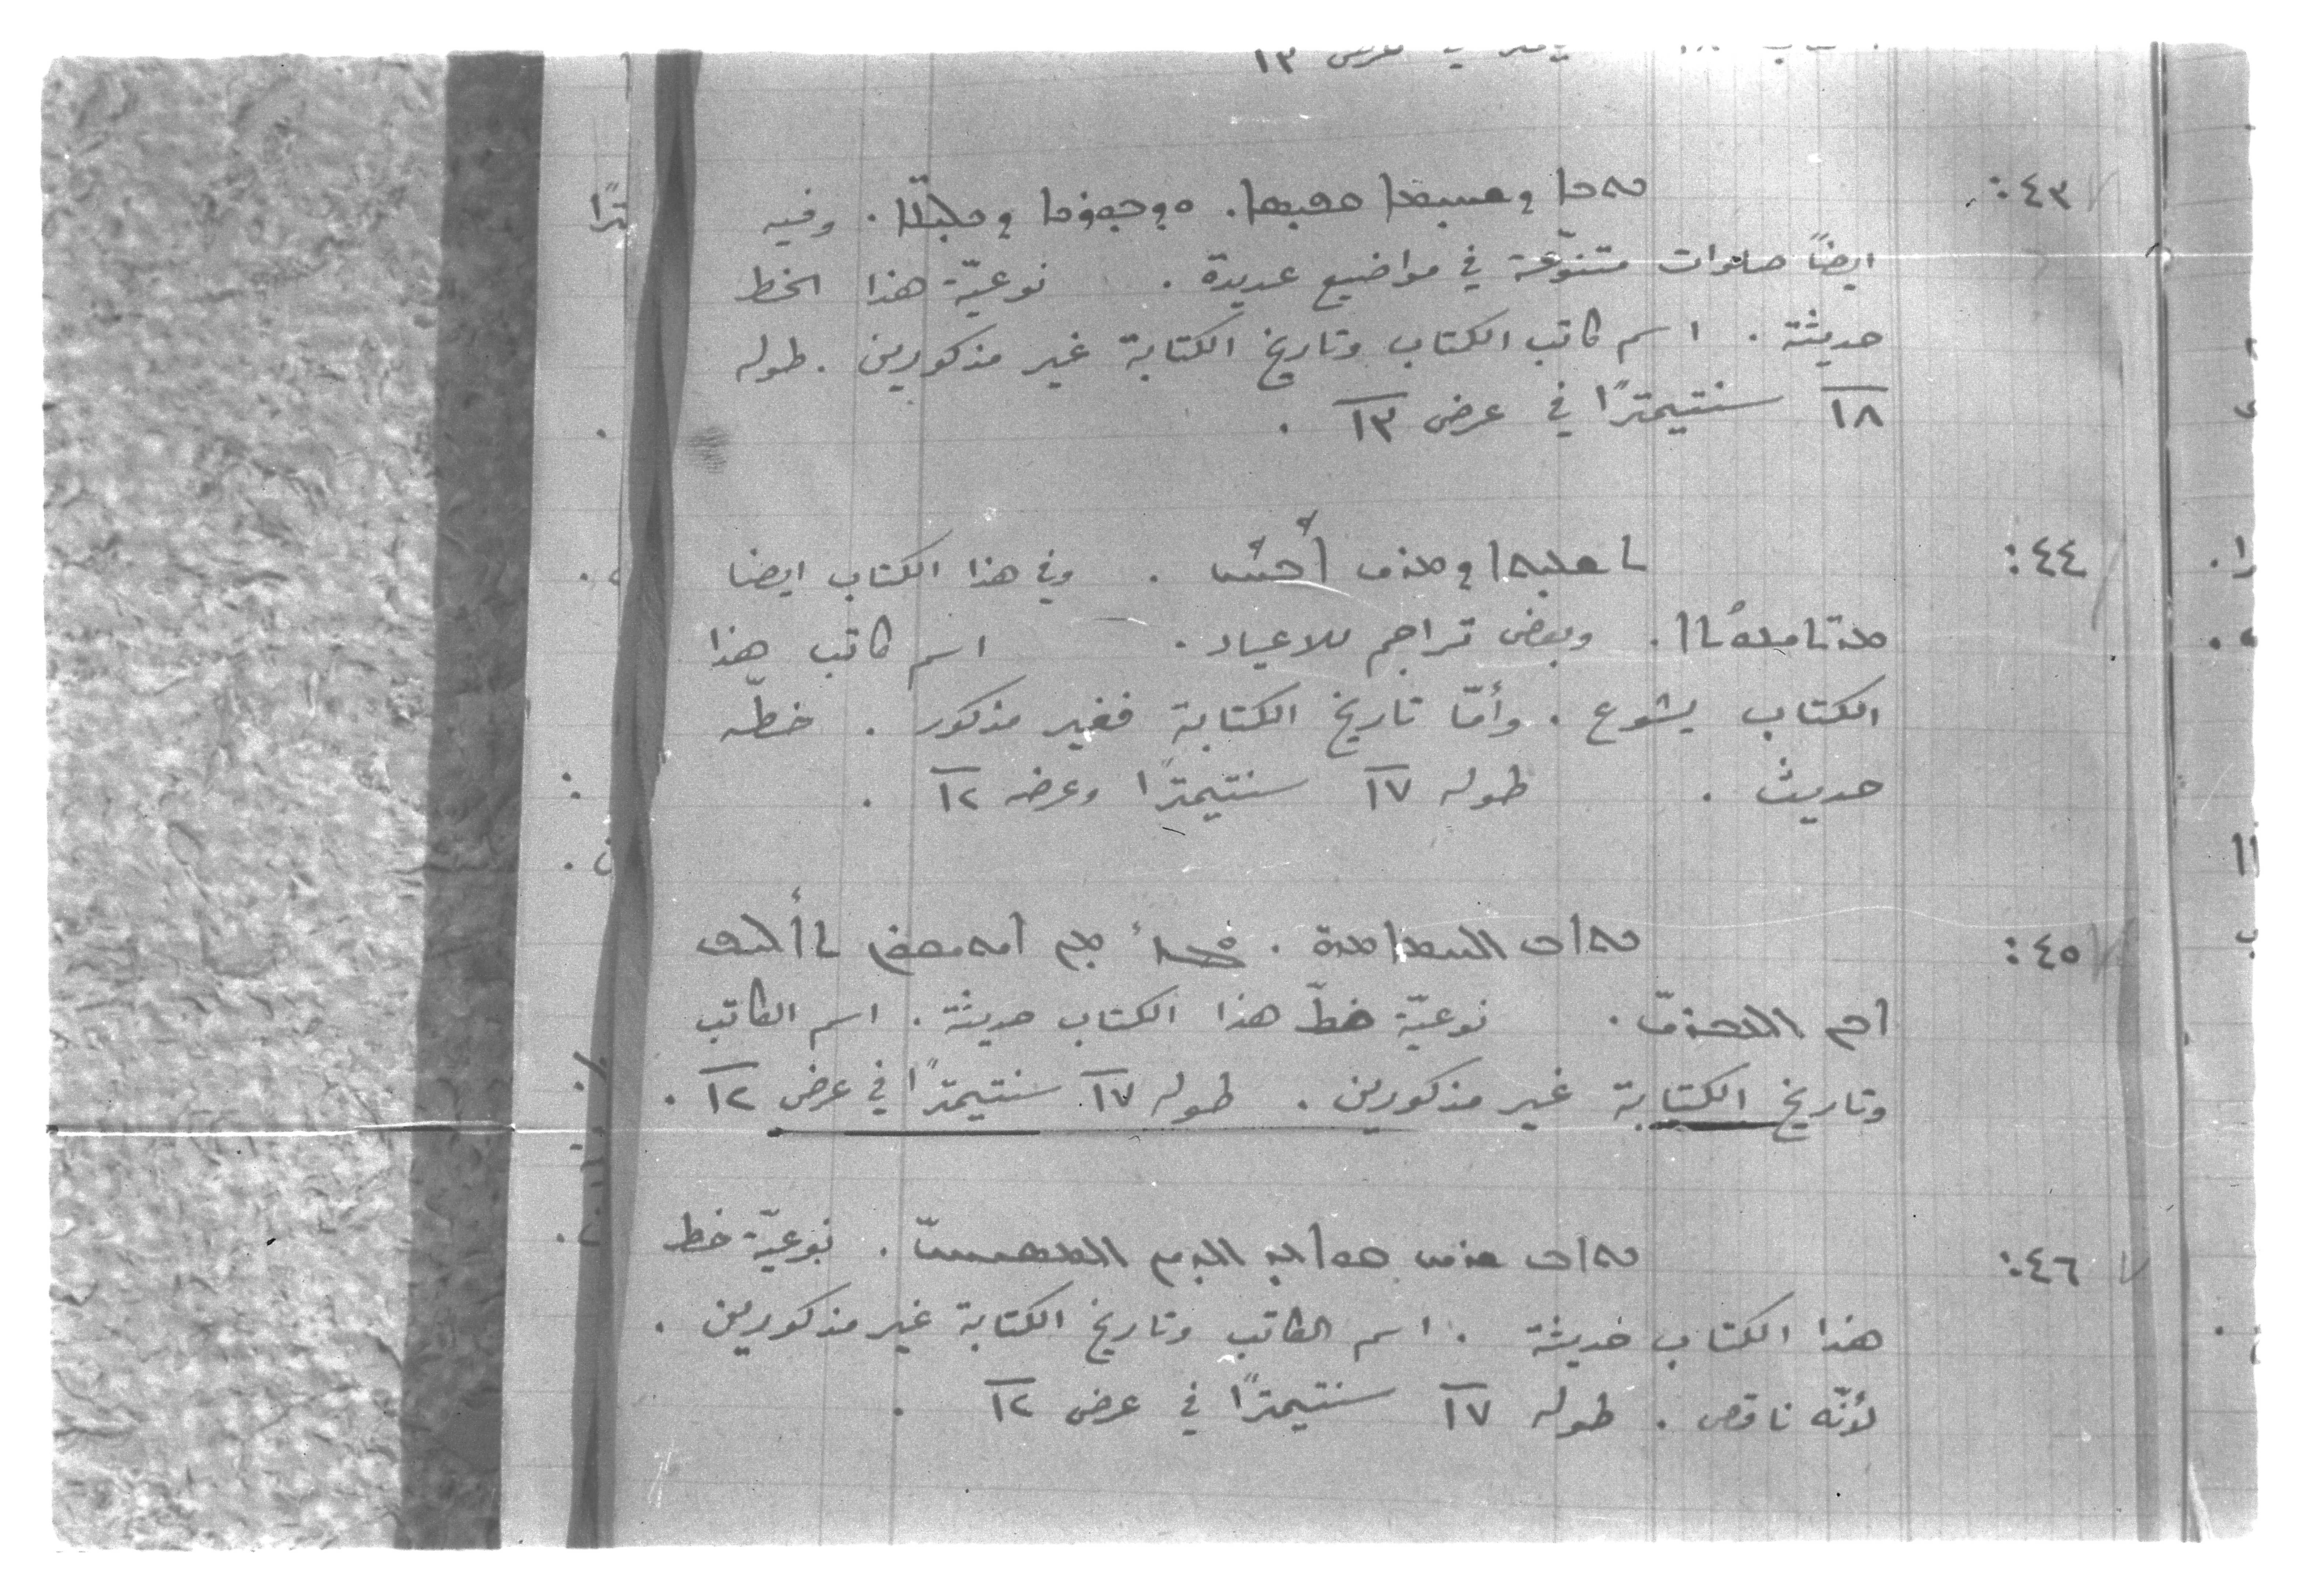 ٤٣: ܕܡܫܝܚܐ . وفيه
ايضاً صلوات متنوّعة في مواضيع عديدة . نوعيّة هذا الخط
حديثة . اسم كاتب الكتاب وتاريخ الكتابة غير مذكورين . طوله
١٨ سنتيمترًا في عرض ١٣ .
٤٤: ܬܫܥܝܬܐ ܕܡܪܝ ܐܒܚܝ . وفي هذا الكتاب ايضا
وبعض تراجم للاعياد . اسم كاتب هذا
الكتاب يشوع . وأمّا تاريخ الكتابة فغير مذكور . خطّه
حديث . طوله ١٧ سنتيمترًا وعرضه ١٢ .
٤٥: ܟܬܐܒ ܐܠܚܡܐܡܗ . ܬܐܠܝܦ
ܐܒܢ ܐܠܥܒܪܝ . نوعيّة خطّ هذا الكتاب حديثة . اسم الكاتب
وتاريخ الكتابة غير مذكورين . طوله ١٧ سنتيمترًا في عرض ١٢ .
٤٦: ܟܬܐܒ ܫܪܚ ܐܠܕܝܢ ܐܠܡܣܝܚܝ . نوعيّة خط
هذا الكتاب حديثة . اسم الكاتب وتاريخ الكتابة غير مذكورين .
لأنّه ناقص . طوله ١٧ سنتيمترًا في عرض ١٢ .